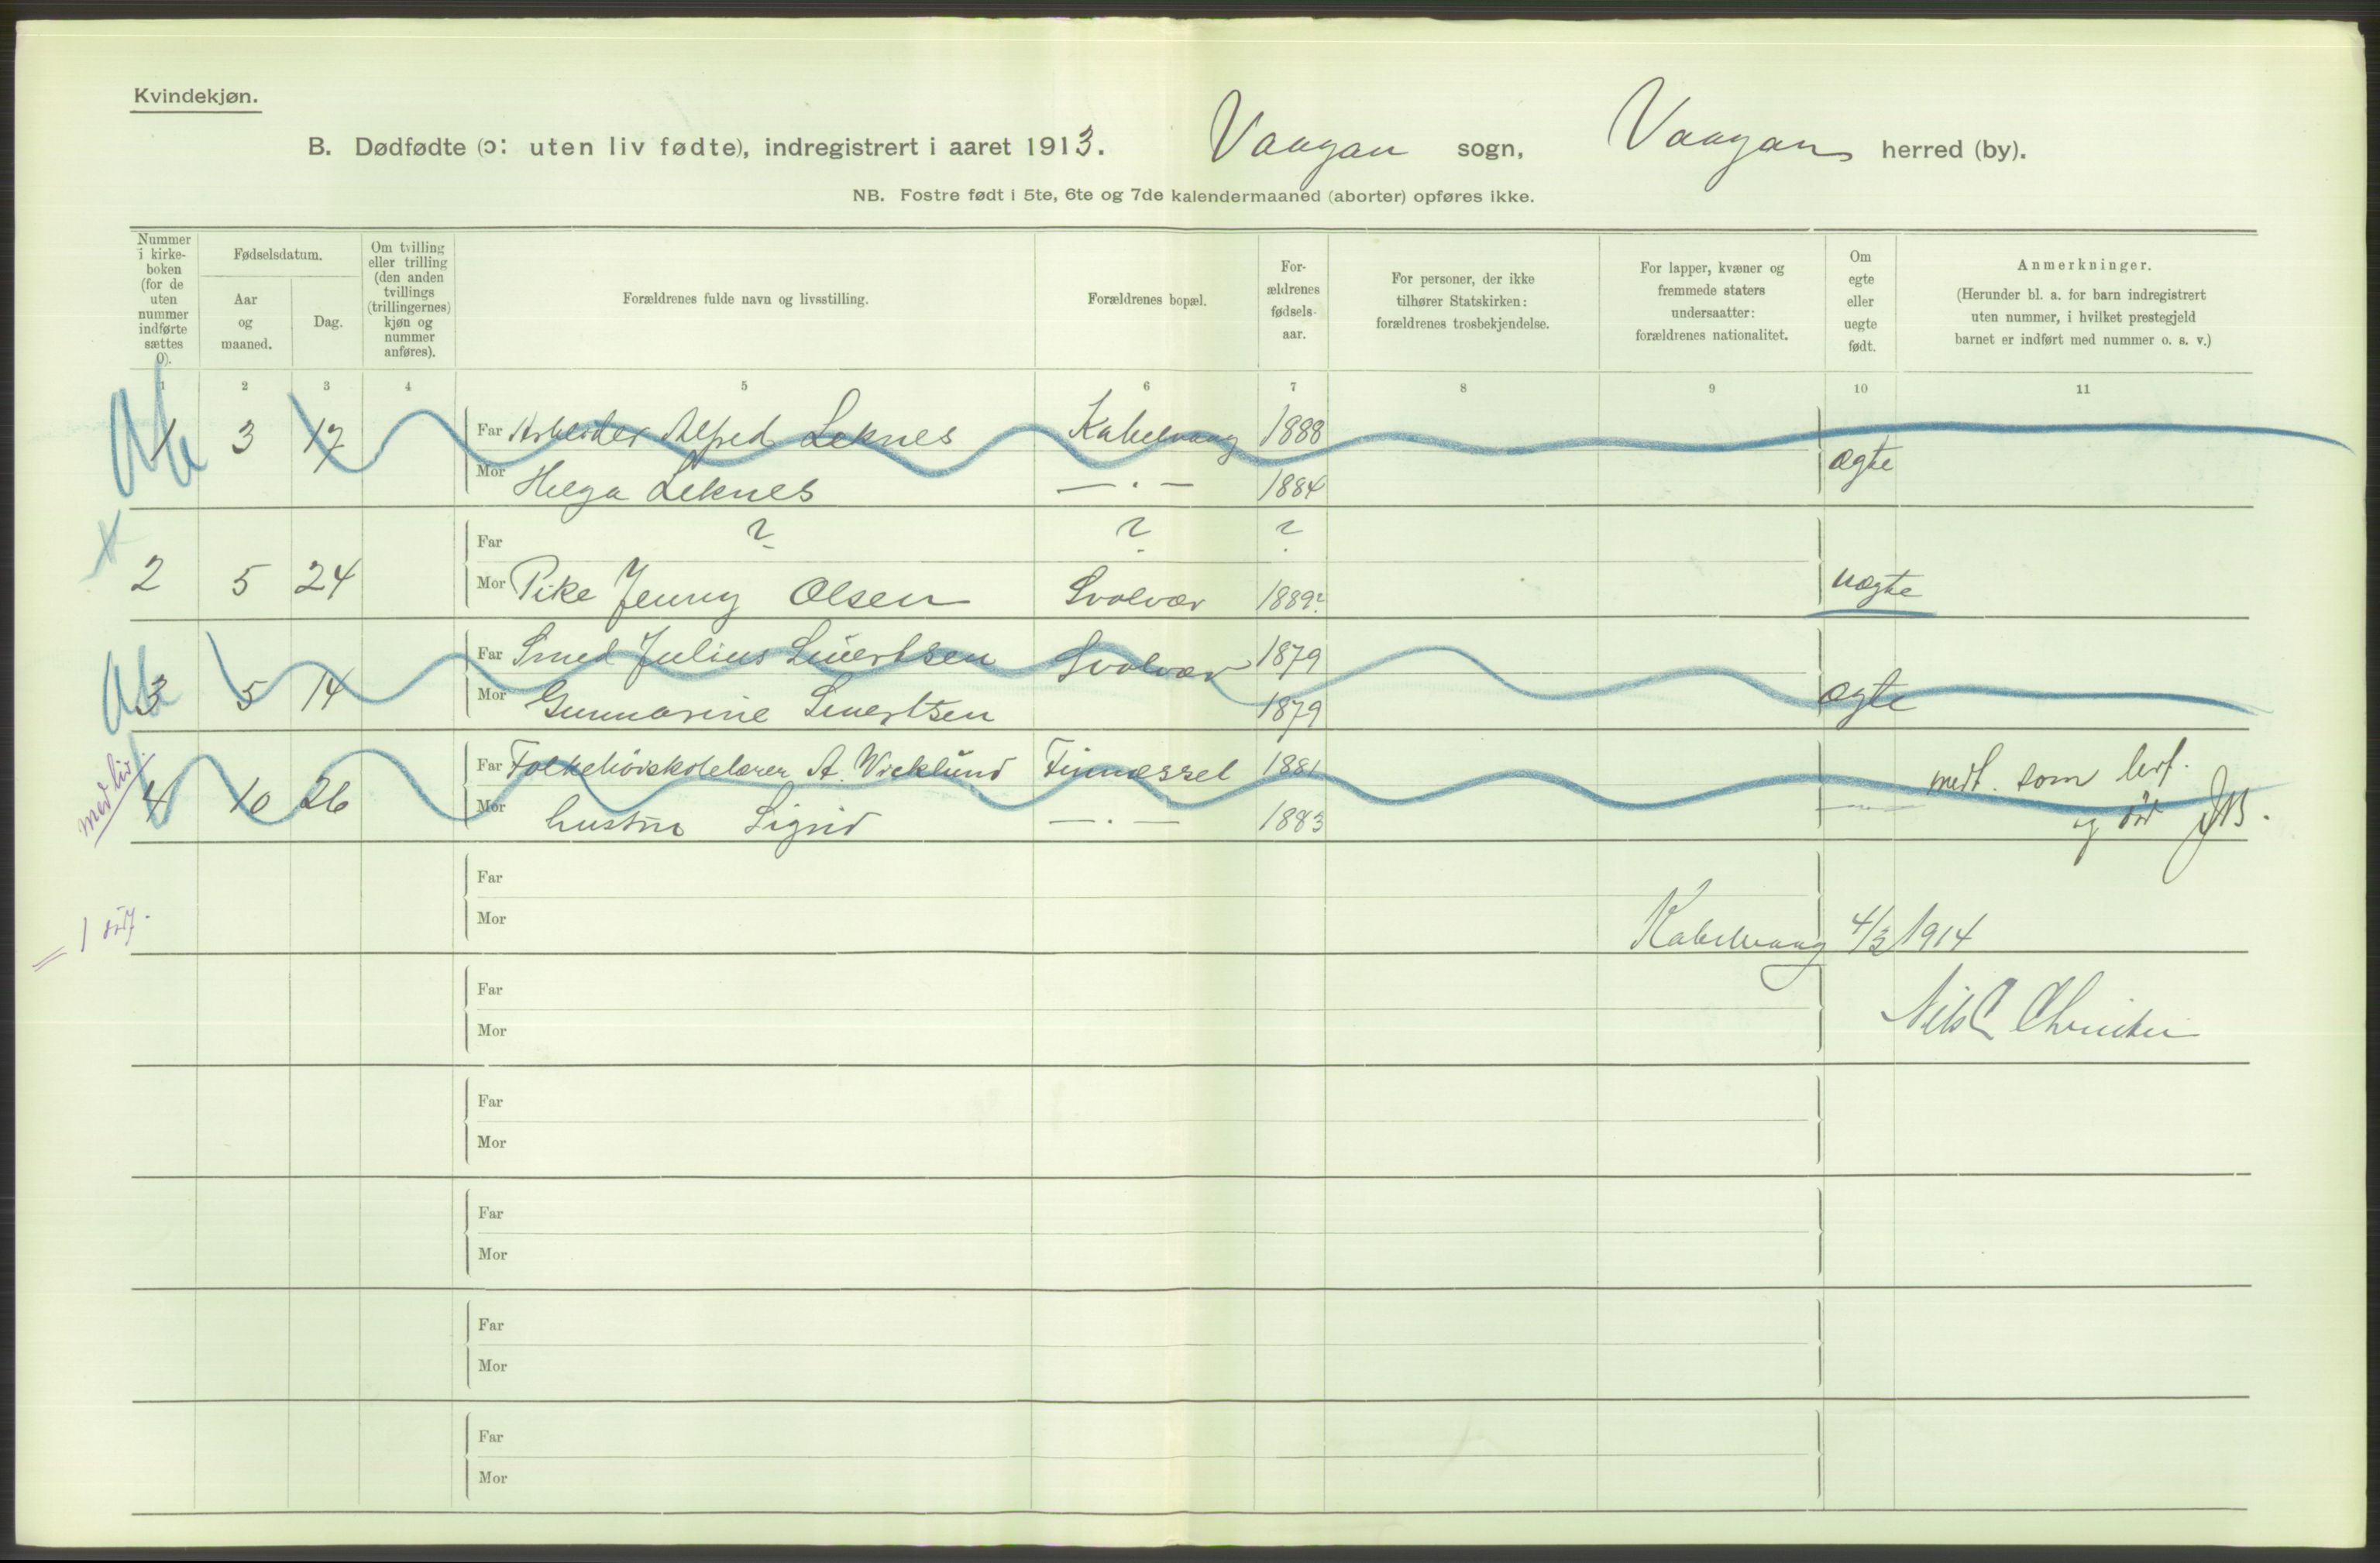 Kvindekjøn.
B. Dødfødte (ɔ: uten liv fødte), indregistrert i aaret 1913. Vaagan sogn, Vaagan herred (by).
NB. Fostre født i 5te, 6te og 7de kalendermaaned (aborter) opføres ikke.
Nummer i kirke-boken (for de uten nummer indførte sættes 0).
Fødselsdatum.
Aar og maaned.
Dag.
Om tvilling eller trilling (den anden tvillings (trillingernes) kjøn og nummer anføres).
Forældrenes fulde navn og livsstilling.
Forældrenes bopæl.
For-ældrenes fødsels-aar.
For personer, der ikke tilhører Statskirken: forældrenes trosbekjendelse.
For lapper, kvæner og fremmede staters undersaatter: forældrenes nationalitet.
Om egte eller uegte født.
Anmerkninger.
(Herunder bl. a. for barn indregistrert uten nummer, i hvilket prestegjeld barnet er indført med nummer o. s. v.)
1 2 3 4 5 6 7 8 9 10 11
Ab
1 3 17 Far Arbeider Alfred Leknes Kabelvaag 1888
Mor Helga Leknes — . — 1884 ægte
x
2 5 24 Far ? ? ?
Mor Pike Jenny Olsen Svolvær 1889? uægte
Ab
3 5 14 Far Smed Julius Sivertsen Svolvær 1879
Mor Gunnarine Sivertsen 1879 ægte
med liv
4 10 26 Far Folkehøiskolelærer A. Wicklund Finnesset 1881 — medt. som levf.
Mor hustru Sigrid — . — 1883 og død
Far
Mor
= 1 dødf. Kabelvaag 4/3 1914
Far
Mor
Far
Mor
Far
Mor
Far
Mor
Far
Mor